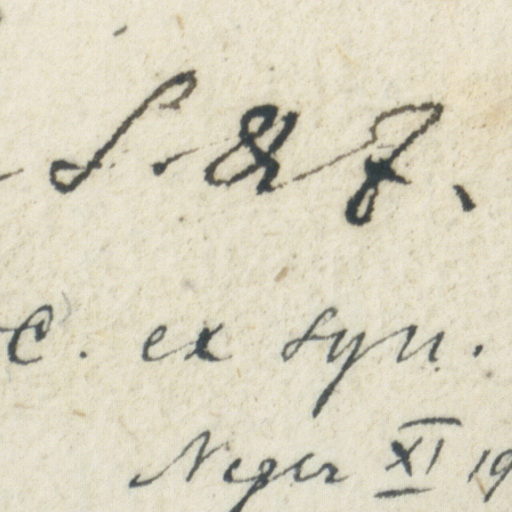 S. & Z.
C. ex syn.
Neger XI 19